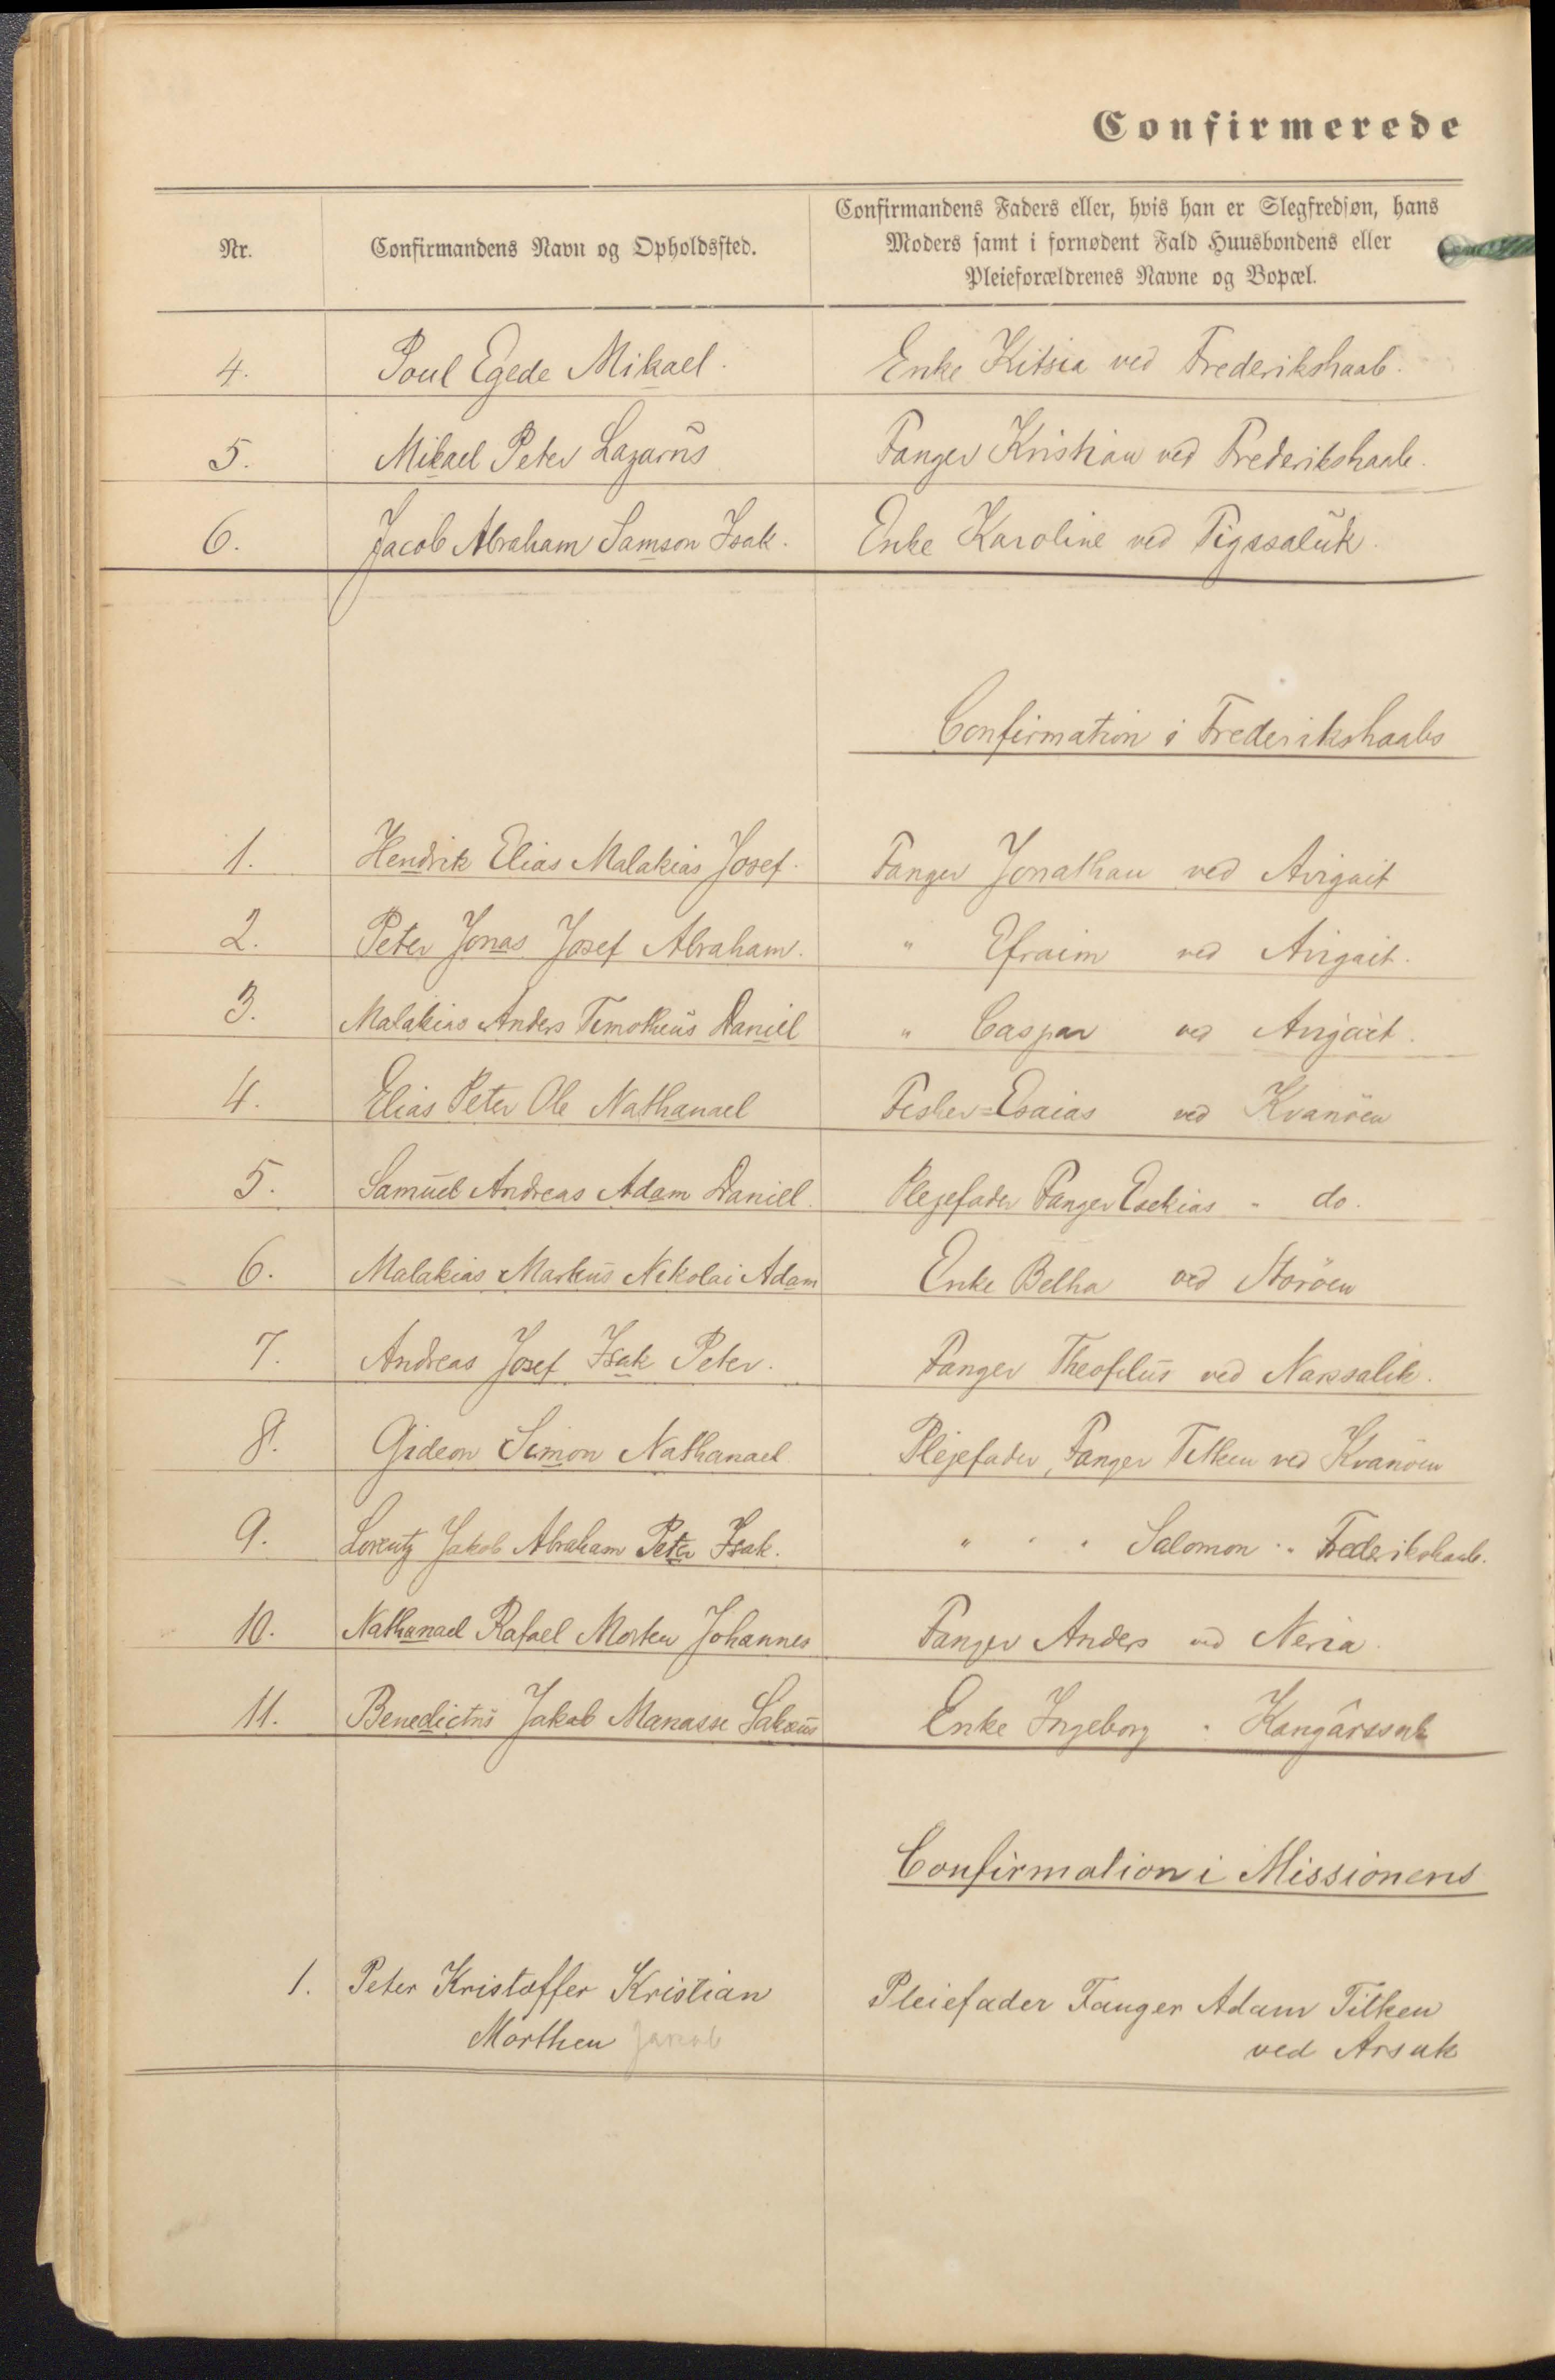 Confirmerede
Nr.
Confirmandens Navn og Opholdssted.
Confirmandens Faders eller, hvis han er Slegfredsøn, hans
Moders samt i fornødent Fald Huusbondens eller
Pleieforældrenes Navne og Bopæl.
4. Poul Egede Mikael. Enke Kitsia ved Frederikshaab.
5. Mikael Peter Lazarus Fanger Kristian ved Frederikshaab.
6. Jacob Abraham Samson Isak. Enke Karoline ved Tigssaluk.
Confirmation i Frederikshaabs
1. Hendrik Elias Malakias Josef. Fanger Jonathan ved Avigait
2. Peter Jonas Josef Abraham. " Efraim ved Avigait.
3. Malakias Anders Timotheus Daniel " Caspar ved Avigait.
4. Elias Peter Ole Nathanael Fisker=Esaias ved Kvanöen
5. Samuel Andreas Adam Daniel. Plejefader Fanger Esekias " do.
6. Malakias Markus Nikolai Adam Enke Belha ved Storöen
7. Andreas Josef Isak Peter. Fanger Theofilus ved Narssalik.
8. Gideon Simon Nathanael Plejefader, Fanger Titken ved Kvanöen
9. Lorentz Jakob Abraham Peter Isak. " " " Salomon " Frederikshaab.
10. Nathanael Rafael Morten Johannes Fanger Anders ved Neria.
11. Benedictus Jakob Manasse Sakæus Enke Ingeborg " Kangârssuk
Confirmation i Missionens
1. Peter Kristoffer Kristian Pleiefader Fanger Adam Titken
Morthen Jakob ved Arsuk